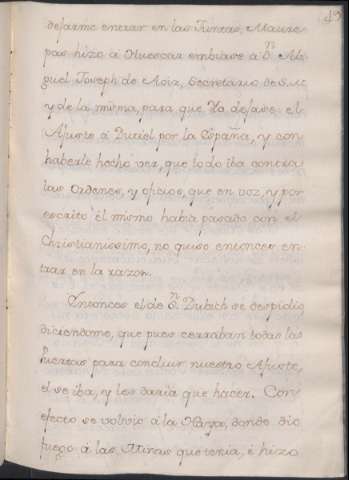 49
dejarme entrar en las Juntas, Maure-
pas hizo á Huescar embiase á Dn. Mi-
guel Joseph de Aoiz, Secretario de S.M.
y de la misma, para que Yo dejase el
Ajuste á Dutiel por la España, y con
haberle hecho ver, que todo iba contra
las Ordenes, y oficios, que en voz, y por
escrito él mismo habia pasado con el
Christianissimo, no quiso entonces en-
trar en la razon.
Entonces el de Dn. Dubitó se despidio
diciendome, que pues cerraban todas las
Puertas para concluir nuestro Ajuste,
el se iba, y les daria que hacer. Con
efecto se volvió á la Haya, donde dio
fuego á las Minas que tenia, é hizo